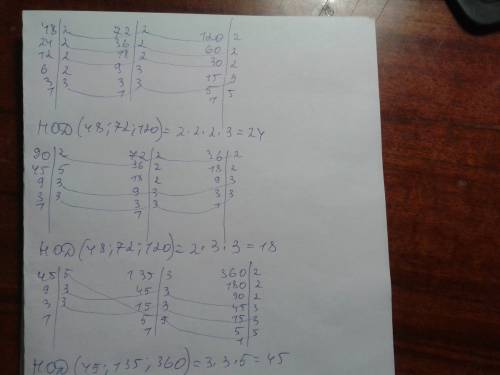 48|2 72|2 120|2
24|2 36|2 60|2
12|2 18|2 30|2
6|2 9|3 15|3
3|3 3|3 5|5
1 1 1
НОД(48;72;120)=2·2·2·3=24
90|2 72|2 36|2
45|5 36|2 18|2
9|3 18|2 9|3
3|3 9|3 3|3
1 3|3 1
1
НОД(48;72;120)=2·3·3=18
45|5 135|3 360|2
9|3 45|3 180|2
3|3 15|3 90|2
1 5|5 45|3
1 15|3
5|5
1
НОД(45;135;360)=3·3·5=45